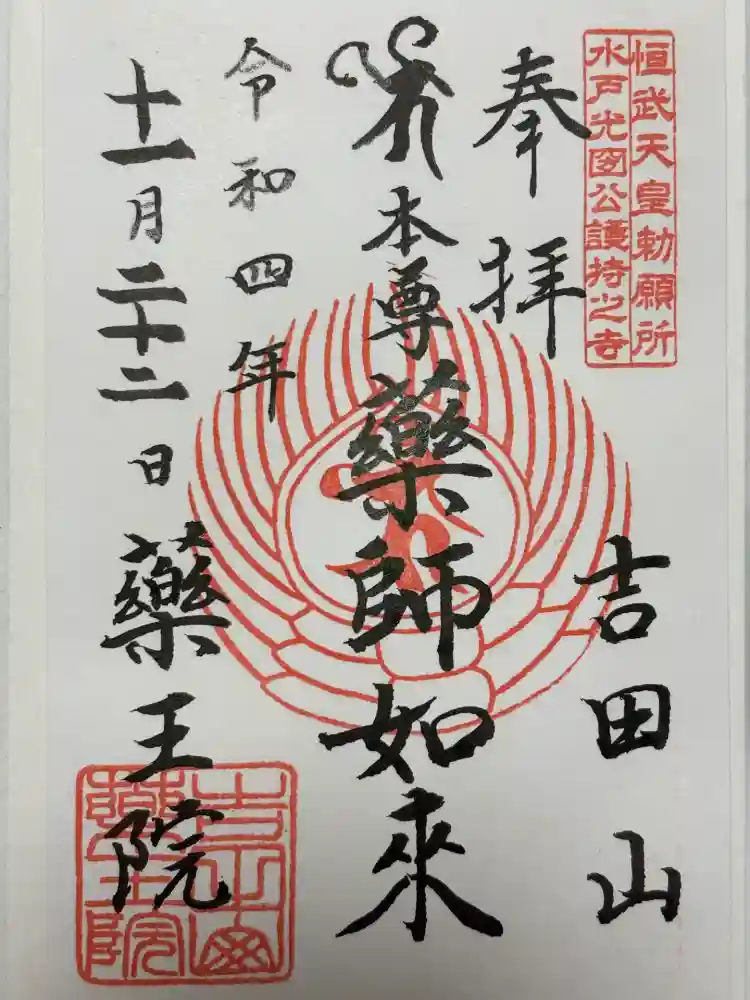 恒武天皇勅願所
水戸光圀公護持之寺
奉拝
吉田山
本尊薬師如來
令和四年
十一月二十二日
藥王院